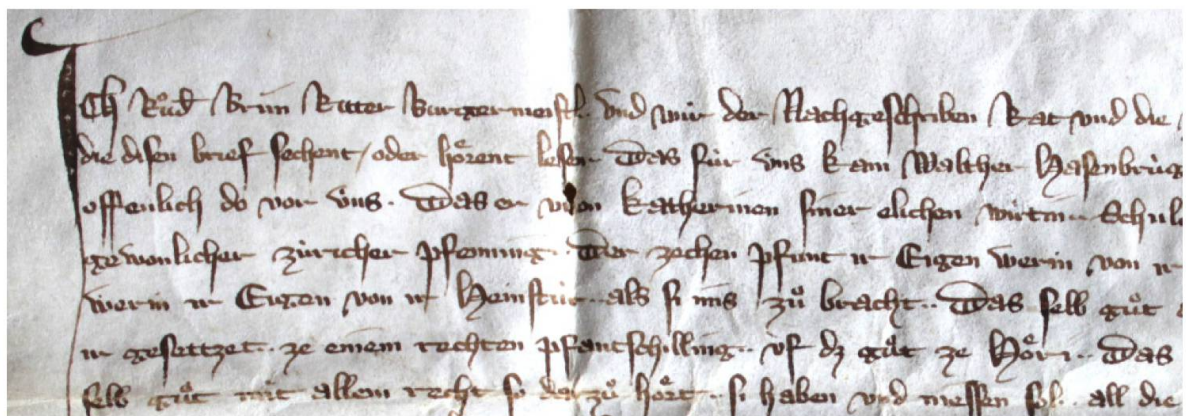 Ich Ruͦd Brun Ritter Burgermeist͛ vnd wir der Nachgeschriben Rat vnd die
die disen brief sechent / oder hoͤrent lesen Das fúr úns kam Walther Hasenbrúg
offenlich do vor úns. Das er von Katherinen siner elichen wirtin Schul
gewonlicher zúricher pfenning. Der zechen pfunt ir Eigen werin von ir
werin ir Eigen von ir Heinstúr als si ins zuͦ bracht. Das selb guͦt
ir gesettzet ze einem rechten pfantschilling vf dz guͦt ze Hoͤri. Das
selb guͦt mit allem recht so dar zuͦ hoͤrt si haben vnd niessen sol. all die